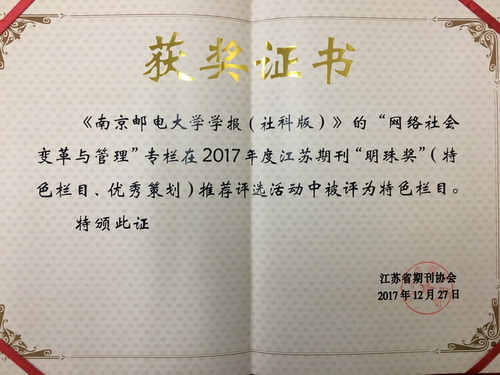 获奖证书
《南京邮电大学学报(社科版)》的“网络社会
变革与管理”专栏在2017年度江苏期刊“明珠奖”(特
色栏目、优秀策划)推荐评选活动中被评为特色栏目。
特颁此证
江苏省期刊协会
2017年12月27日